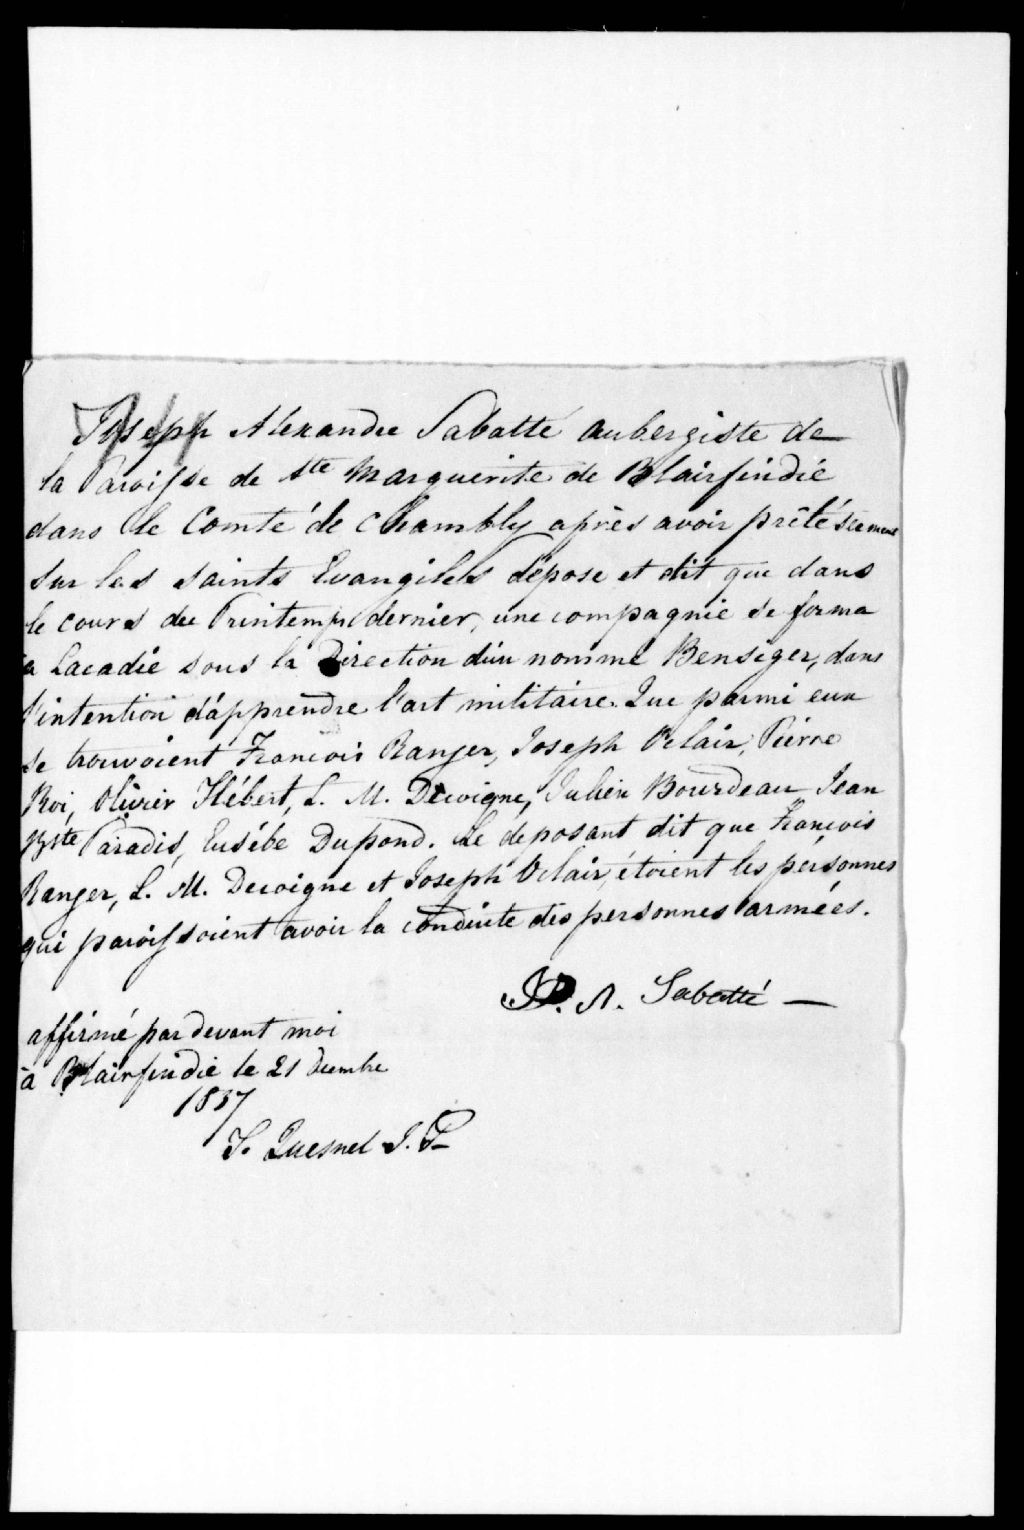 Joseph Alexandre Sabatté aubergiste de
la Paroisse de Ste Marguerite de Blairfindie
dans le Comté de Chambly après avoir prêté serment
sur les saints Evangiles dépose et dit que dans
le cours du Printemps dernier, une compagnie se forma
a Lacadie sous la Direction d'un nommé Benseger, dans
l'intention d'apprendre l'art militaire. Que parmi eux
se trouvoient François Ranger, Joseph Velair, Pierre
Roi, Olivier Hébert, L. M. Decoigne, Julien Bourdeau Jean
Bte Paradis, Eusébe Dupond. Le deposant dit que François
Ranger, L. M. Decoigne et Joseph Velair, étoient les personnes
qui paroissoient avoir la conduite des personnes armées.
A. Sabatté
affirmé par devant moi
à Blairfindie le 21 Decembre
1837
Quesnel J. P